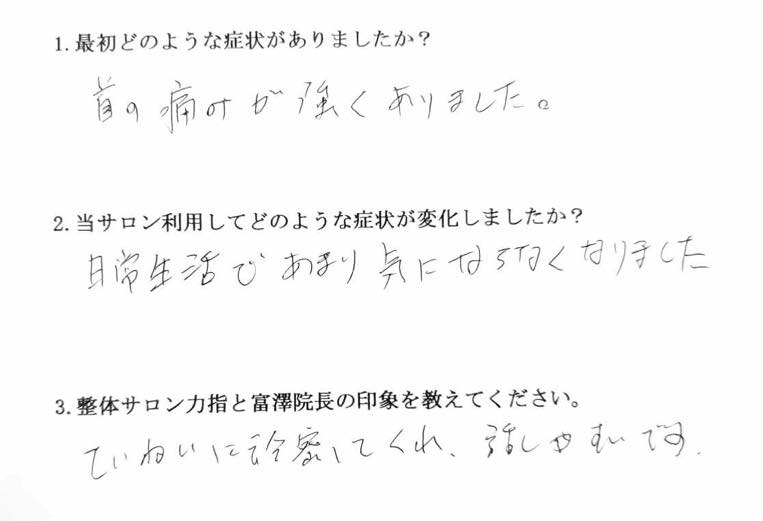 1. 最初どのような症状がありましたか？
首の痛みが強くありました。
2. 当サロン利用してどのような症状が変化しましたか？
日常生活であまり気にならなくなりました
3. 整体サロン力指と富澤院長の印象を教えてください。
ていねいに診察してくれ、話しやすいです.